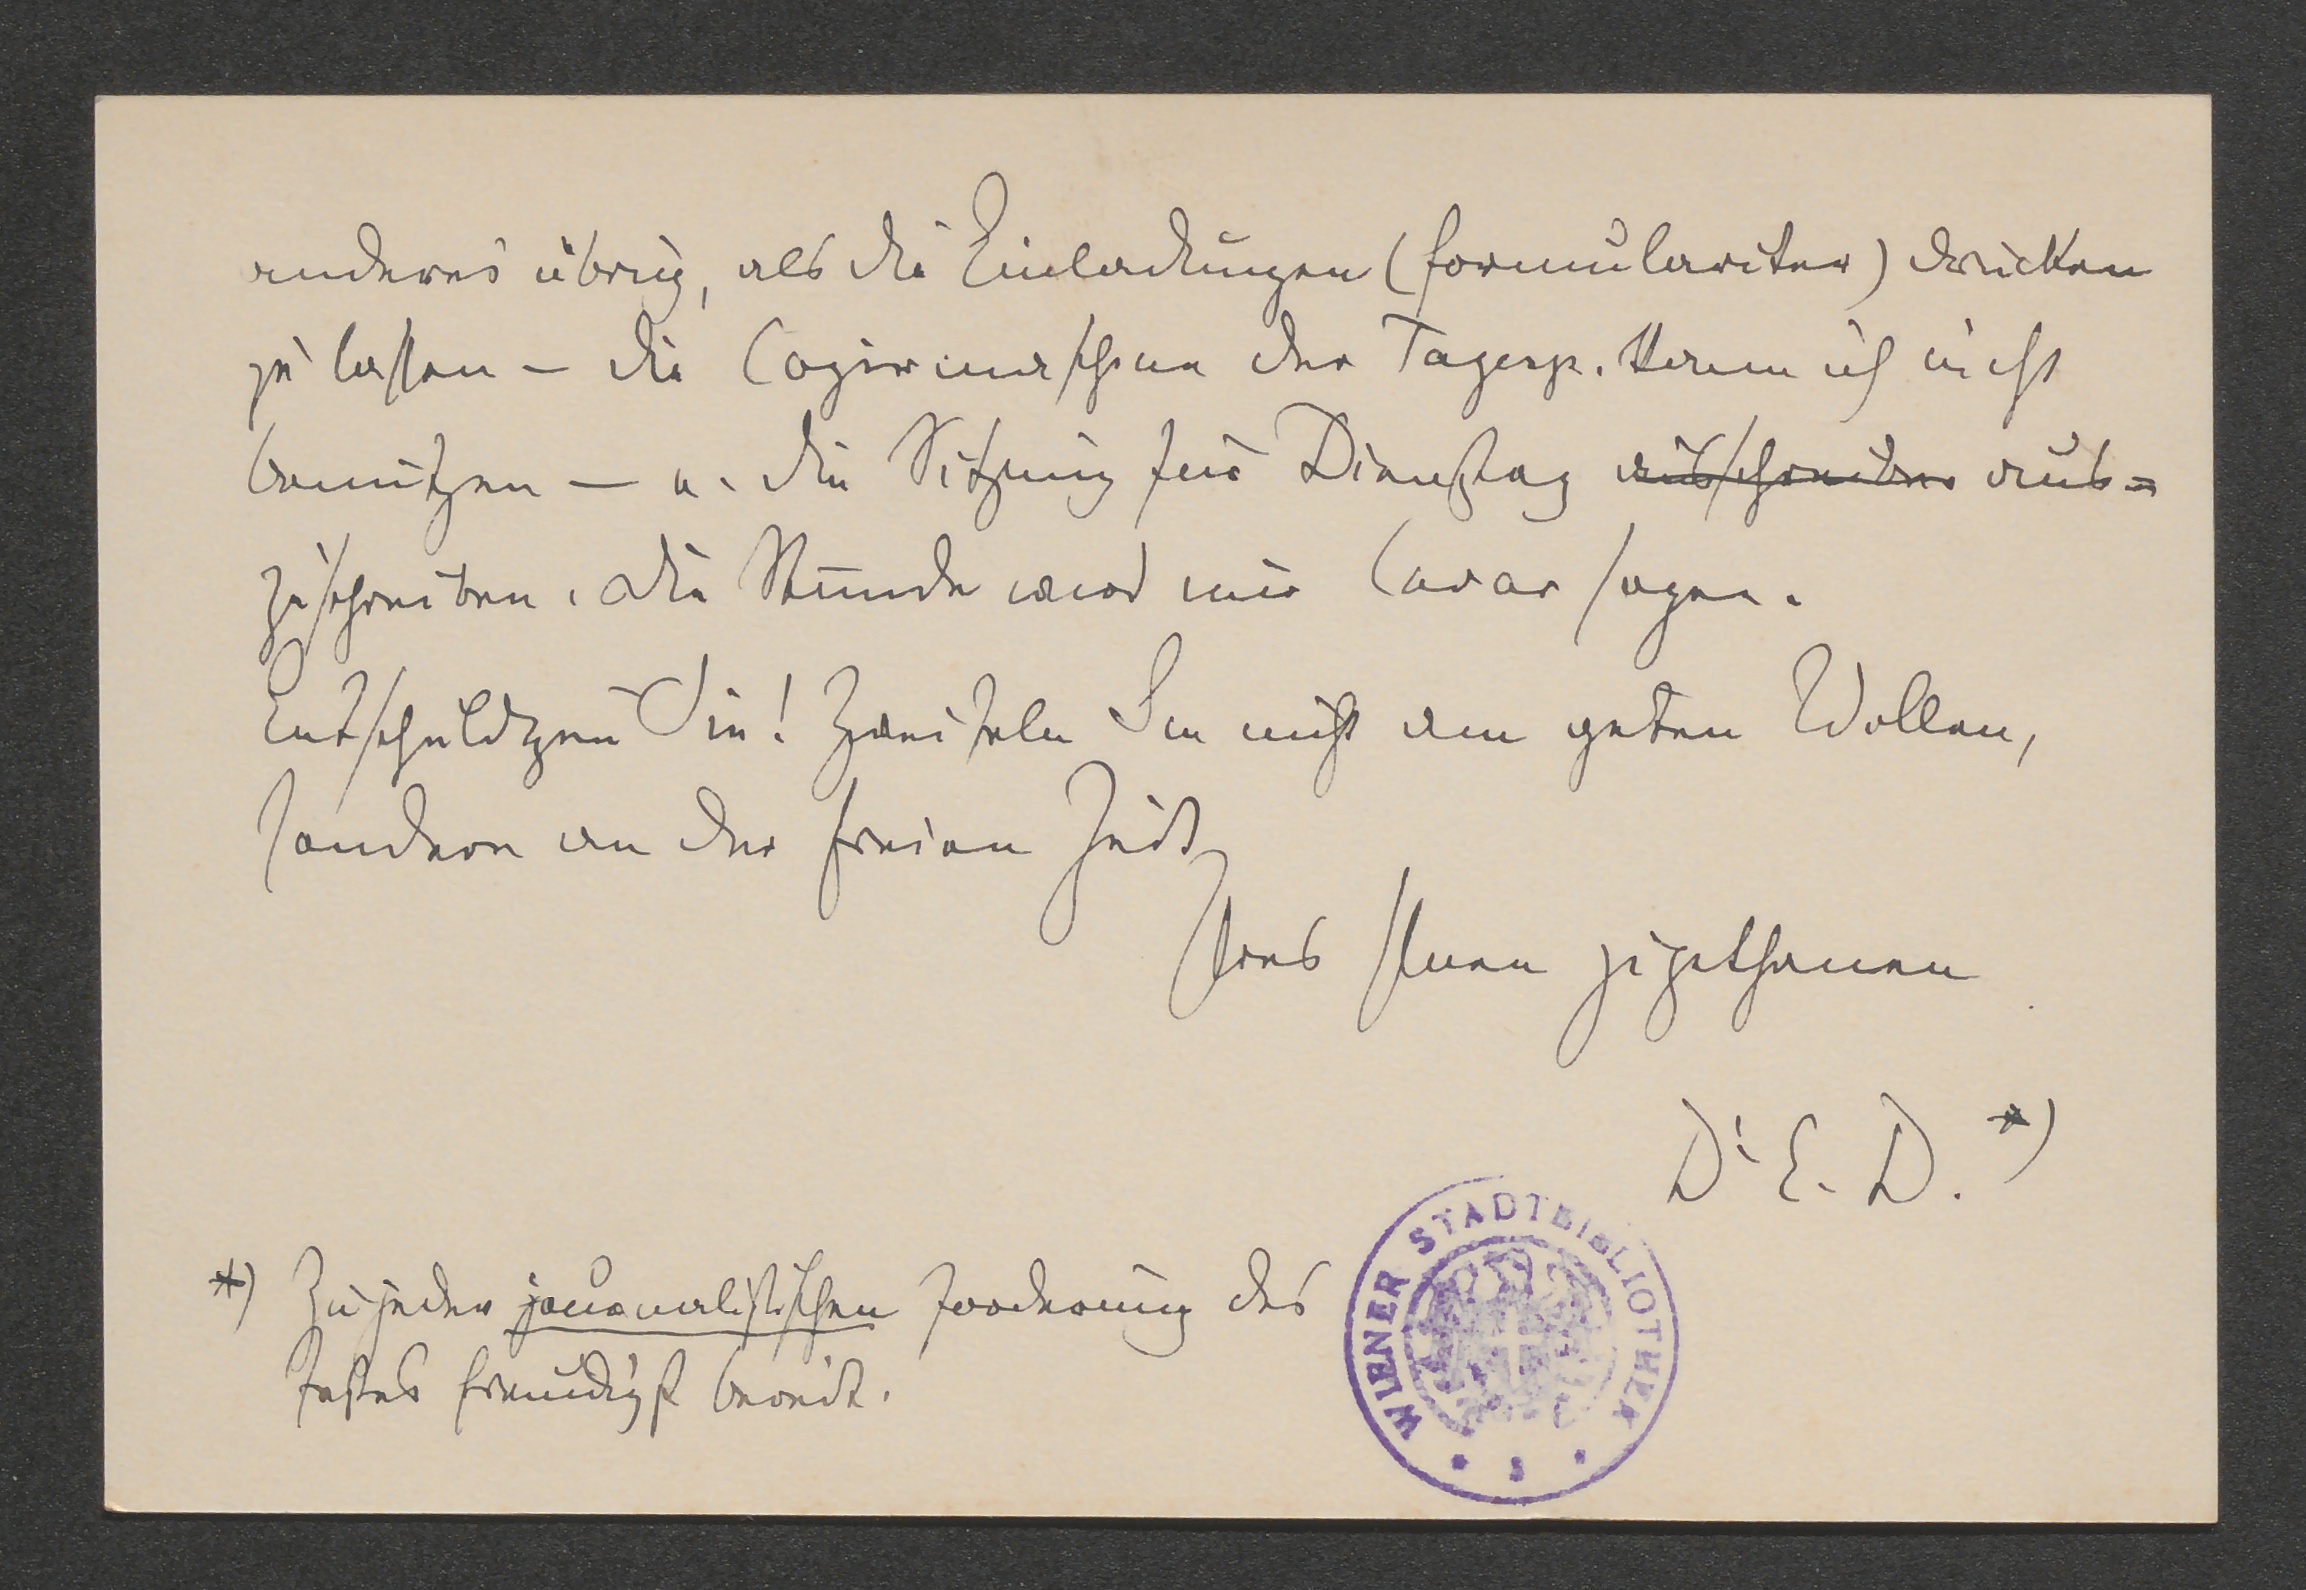 anderes übrig, als die Einladungen (formulariter) drucken
zu lassen – die Copirmaschine der Tagesp. kann ich nicht
benutzen – u. die Sitzung für Dienstag ausschreiben aus-
zuschreiben. Die Stunde wird mir Lavar sagen.
Entschuldigen Sie! Zweifeln Sie nicht am guten Wollen,
sondern an der freien Zeit
Ihres Ihnen zugethanen
Dr E. D. *)
*) Zu jeder journalistischen Forderung des
Festes freudigst bereit.
WIENER STADTBIBLIOTHEK